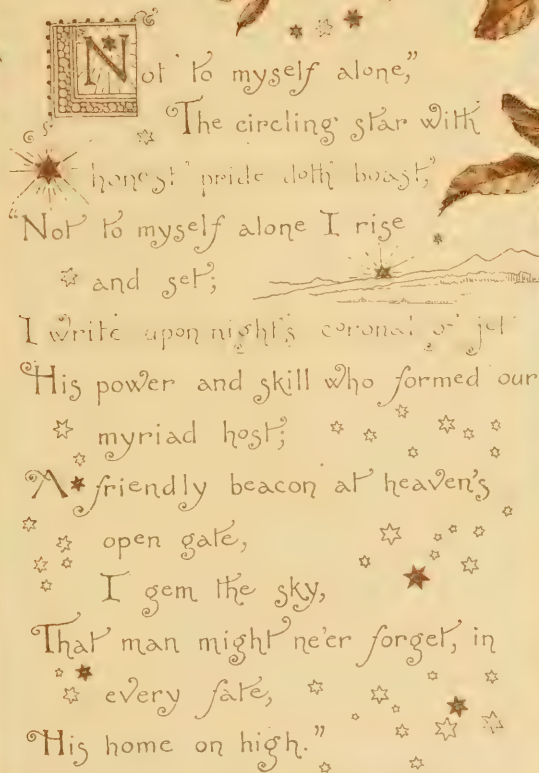 Not to myself alone,"
The circling star with
honest pride doth boast,"
"Not to myself alone I rise
and set;
I write upon night's coronal of jet
His power and skill who formed our
myriad host;
A friendly beacon at heaven's
open gate,
I gem the sky,
That man might ne'er forget, in
every fate,
His home on high."